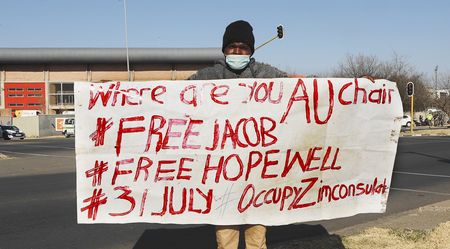 Where are you AU chair
#FREE JACOB
#FREE HOPEWELL
#31 JULY #OccupyZimconsulate